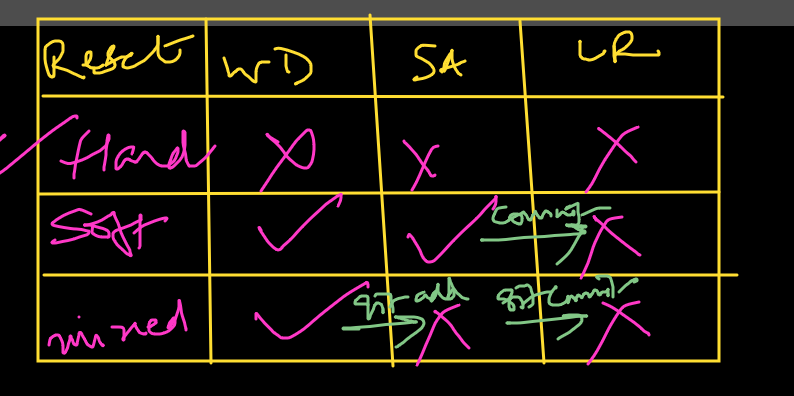 Reset WD SA LR
Hard X X X
Soft ✓ ✓ commit X
mixed ✓ git add X git commit X